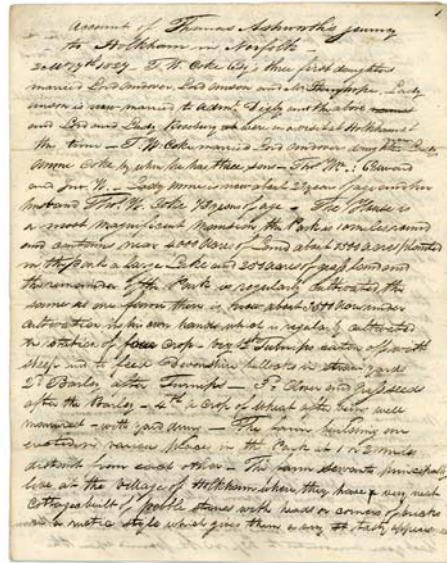 Account of Thomas Ashworth's journey
to Holkham in Norfolk —
2 Mo 19th 1827 T. W. Coke Esq's three first daughters
married Lord Andover, Lord Anson and Mr Stanhope, Lady
Anson is now married to Adml. Digby and the above
and Lord and Lady Roseberry are here on a visit at Holkham at
this time — T. W. Coke married Lord daughter Lady
Anne Coke by whom he has three sons — Thos Wm.: Edward
and W. — Lady Anne is now about 22 years of age and her
husband Thos W. Coke 73 years of age — The House is
a most magnificent Mansion, the Park is 10 miles round
and contains near 4000 Acres of Land about 1500 acres planted
in the park a large Lake and 250 acres of grass land and
the remainder of the Park is regularly cultivated the
same as one farm there is know about 3500 Acres under
cultivation in his own hands which is regularly cultivated
in rotation of four crops — viz 1st Turnips eaten off with
sheep and to feed Devonshire bullocks in straw yards
2d Barley after Turnips — 3d Clover and Grass seeds
after the Barley — 4th a crop of Wheat after being well
manured — with yard dung — The farm buildings are
erected in various place in the Park at 1 or 2 miles
distant from each other — The farm servants principally
live at the Village of Holkham where they have very neat
Cottages built of pebble stones with heads or corners of bricks
in a rustic style which gives them a very tasty appear